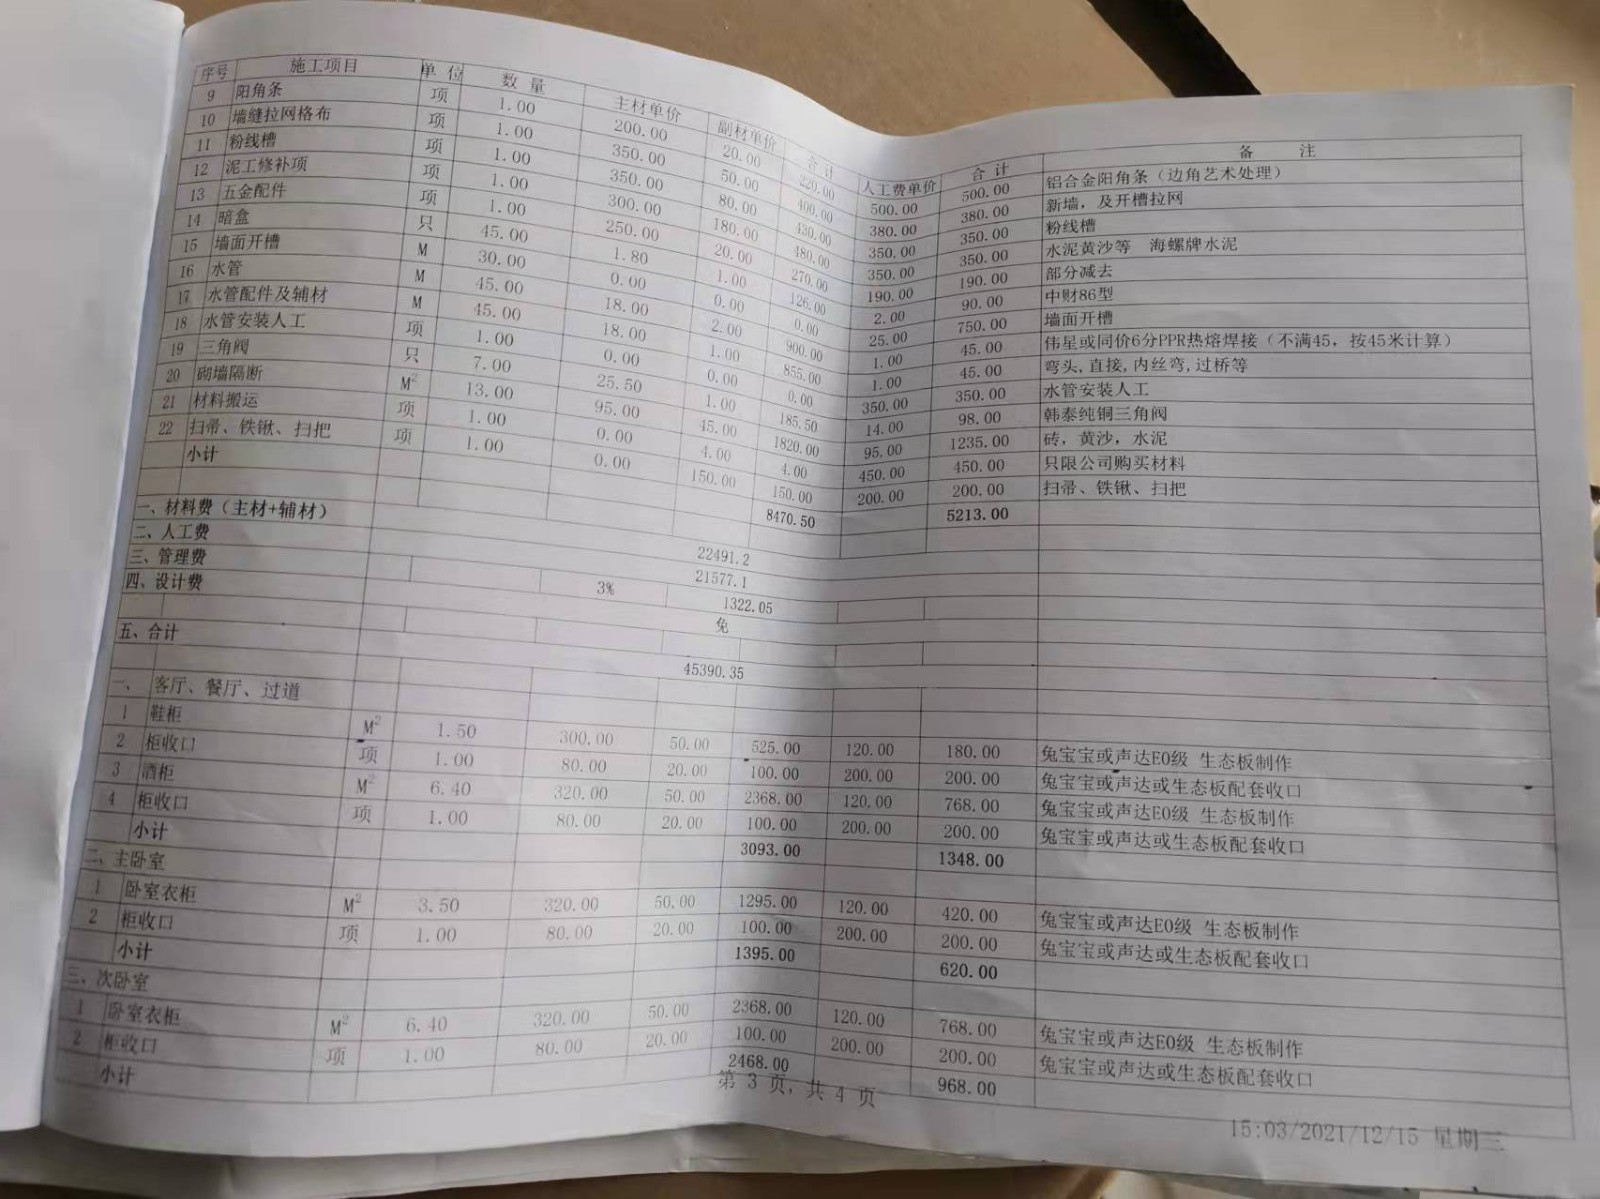 序号 施工项目 单位 数量 主材单价 副材单价 合计 人工费单价 合计 备注
9 阳角条 项 1.00 200.00 20.00 220.00 500.00 500.00 铝合金阳角条（边角艺术处理）
10 墙缝拉网格布 项 1.00 350.00 50.00 400.00 380.00 380.00 新墙，及开槽拉网
11 粉线槽 项 1.00 350.00 80.00 430.00 350.00 350.00 粉线槽
12 泥工修补项 项 1.00 300.00 180.00 480.00 350.00 350.00 水泥黄沙等 海螺牌水泥
13 五金配件 项 1.00 250.00 20.00 270.00 190.00 190.00 部分减去
14 暗盒 只 45.00 1.80 1.00 126.00 2.00 90.00 中财86型
15 墙面开槽 M 30.00 0.00 0.00 0.00 25.00 750.00 墙面开槽
16 水管 M 45.00 18.00 2.00 900.00 1.00 45.00 伟星或同价6分PPR热熔焊接（不满45，按45米计算）
17 水管配件及辅材 M 45.00 18.00 1.00 855.00 1.00 45.00 弯头,直接,内丝弯,过桥等
18 水管安装人工 项 1.00 0.00 0.00 0.00 350.00 350.00 水管安装人工
19 三角阀 只 7.00 25.50 1.00 185.50 14.00 98.00 韩泰纯铜三角阀
20 砌墙隔断 M² 13.00 95.00 45.00 1820.00 95.00 1235.00 砖，黄沙，水泥
21 材料搬运 项 1.00 0.00 4.00 4.00 450.00 450.00 只限公司购买材料
22 扫帚、铁锹、扫把 项 1.00 0.00 150.00 150.00 200.00 200.00 扫帚、铁锹、扫把
小计 8470.50 5213.00
一、材料费（主材+辅材） 22491.2
二、人工费 21577.1
三、管理费 3% 1322.05
四、设计费 免
五、合计 45390.35
一、 客厅、餐厅、过道
1 鞋柜 M² 1.50 300.00 50.00 525.00 120.00 180.00 兔宝宝或声达E0级 生态板制作
2 柜收口 项 1.00 80.00 20.00 100.00 200.00 200.00 兔宝宝或声达或生态板配套收口
3 酒柜 M² 6.40 320.00 50.00 2368.00 120.00 768.00 兔宝宝或声达E0级 生态板制作
4 柜收口 项 1.00 80.00 20.00 100.00 200.00 200.00 兔宝宝或声达或生态板配套收口
小计 3093.00 1348.00
二、主卧室
1 卧室衣柜 M² 3.50 320.00 50.00 1295.00 120.00 420.00 兔宝宝或声达E0级 生态板制作
2 柜收口 项 1.00 80.00 20.00 100.00 200.00 200.00 兔宝宝或声达或生态板配套收口
小计 1395.00 620.00
三、次卧室
1 卧室衣柜 M² 6.40 320.00 50.00 2368.00 120.00 768.00 兔宝宝或声达E0级 生态板制作
2 柜收口 项 1.00 80.00 20.00 100.00 200.00 200.00 兔宝宝或声达或生态板配套收口
小计 2468.00 968.00
第 3 页，共 4 页
15:03/2021/12/15 星期三